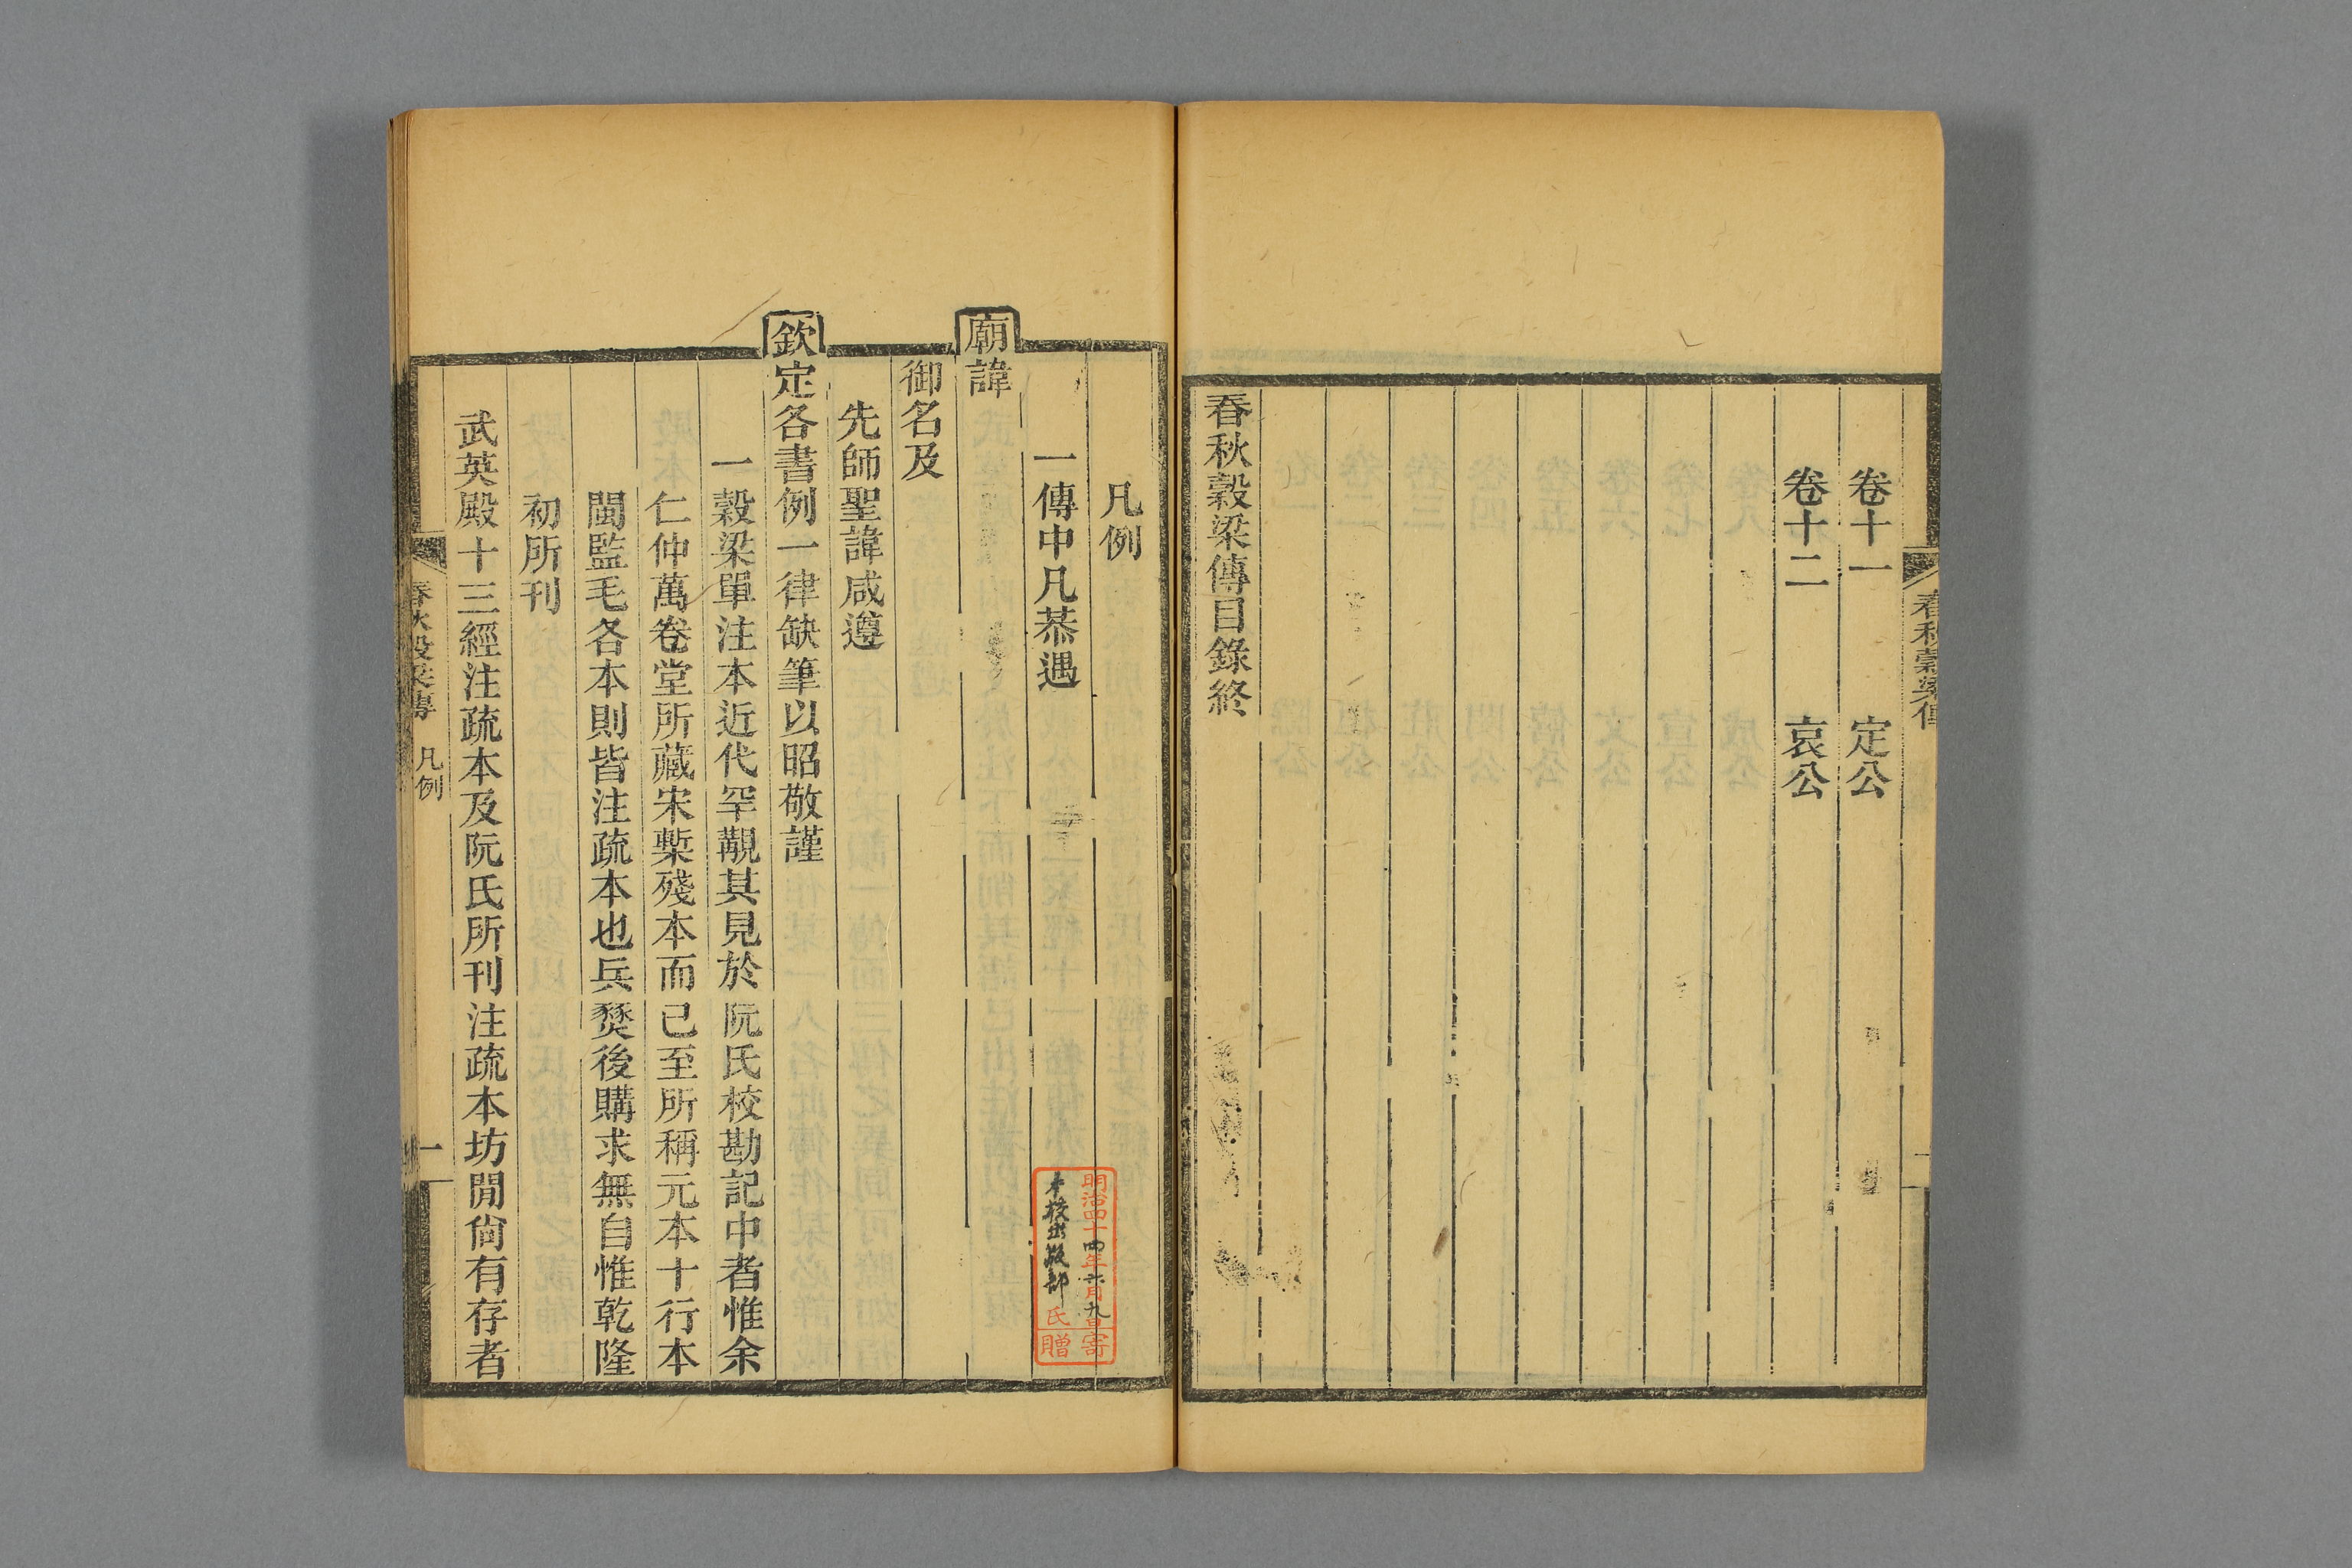 春秋穀梁傳
卷十一　定公
卷十二　哀公
春秋穀梁傳目錄終
凡例
一傳中凡恭遇
廟諱
御名及
先師聖諱咸遵
欽定各書例一律缺筆以昭敬謹
一穀梁單注本近代罕覯其見於阮氏校勘記中者惟余
仁仲萬卷堂所藏宋槧殘本而已至所稱元本十行本
閩監毛各本則皆注疏本也兵燹後購求無自惟乾隆
初所刊
武英殿十三經注疏本及阮氏所刊注疏本坊閒尙有存者
春秋穀梁傳　凡例　一
明治四十四年六月九日寄
本校出版部氏贈